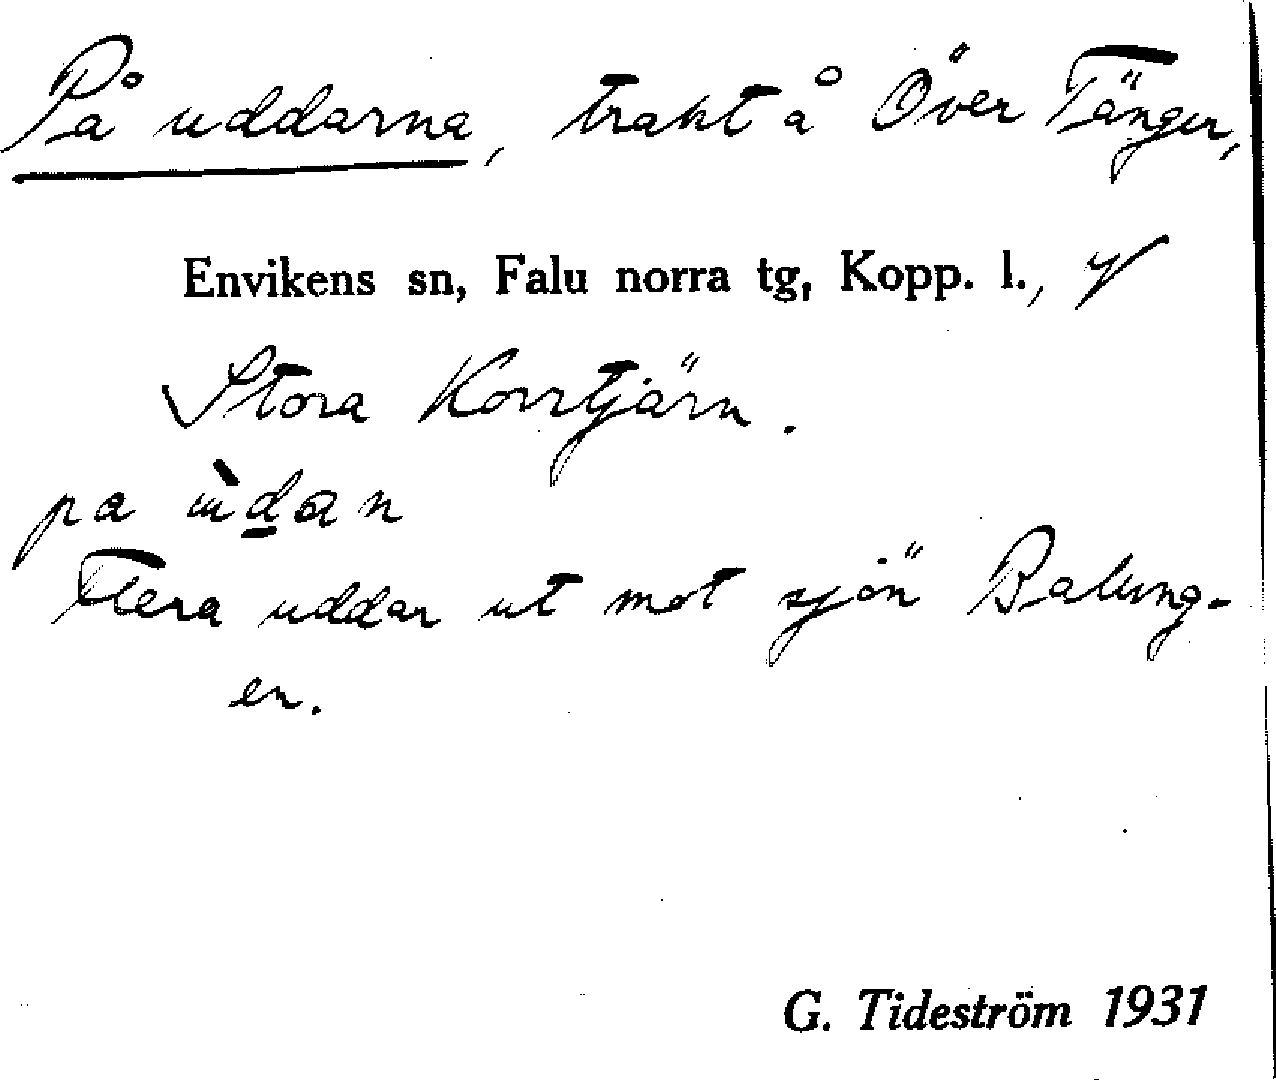 På uddarna, trakt å Över Tänger,
Envikens sn, Falu norra tg, Kopp. l., V
Stora Korrtjärn.
pa ùdan
Flera uddar ut mot sjön Balung-
en.
G. Tideström 1931